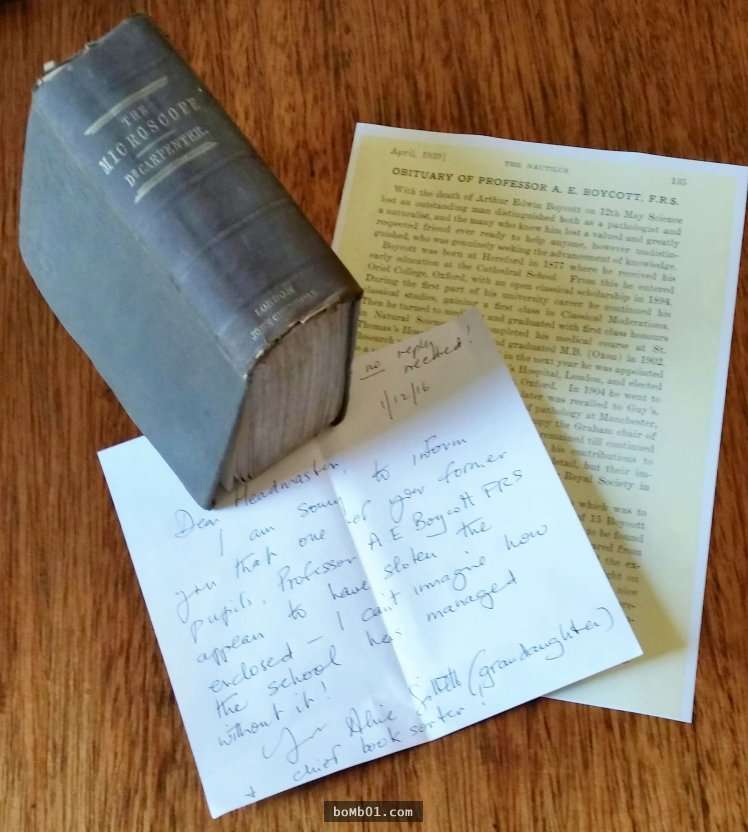 THE
MICROSCOPE
DR CARPENTER.
LONDON
April, 1939]
THE NAUTILUS
135
OBITUARY OF PROFESSOR A. E. BOYCOTT, F.R.S.
With the death of Arthur Edwin Boycott on 12th May Science
lost an outstanding man distinguished both as a pathologist and
a naturalist, and the many who knew him lost a valued and greatly
respected friend ever ready to help anyone, however undistin-
guished, who was genuinely seeking the advancement of knowledge.
Boycott was born at Hereford in 1877 where he received his
early education at the Cathedral School. From this he entered
Oriel College, Oxford, with an open classical scholarship in 1894.
During the first part of his university career he continued his
classical studies, gaining a first class in Classical Moderations.
Then he turned to and graduated with first class honours
in Natural completed his medical course at St.
Thomas's graduated M.D. (Oxon) in 1902.
in the next year he was appointed
Hospital, London, and elected
Oxford. In 1904 he went to
later was recalled to Guy's.
of pathology at Manchester,
the Graham chair of
remained till continued
his contributions to
detail, but their im-
Royal Society in
which was to
of 15 Boycott
to be found
from
the ex-
on
nice
no reply
needed!
1/12/16
Dear Headmaster,
I am sorry to inform
you that one of your former
pupils, Professor A E Boycott FRS
appears to have stolen the
enclosed – I can't imagine how
the school has managed
without it!
Yrs Alice (grandaughter)
+ chief book sorter!
boMb01.com